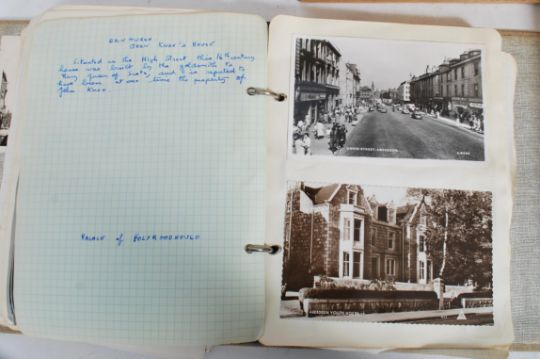 EDINBURGH
JOHN KNOX'S HOUSE
Situated in the High Street this 16th century
house was built by the goldsmith to
Mary Queen of Scots, and is reputed to
have been at one time the property of
John Knox.
PALACE of HOLYROODHOUSE
UNION STREET, ABERDEEN
ABERDEEN YOUTH HOSTEL